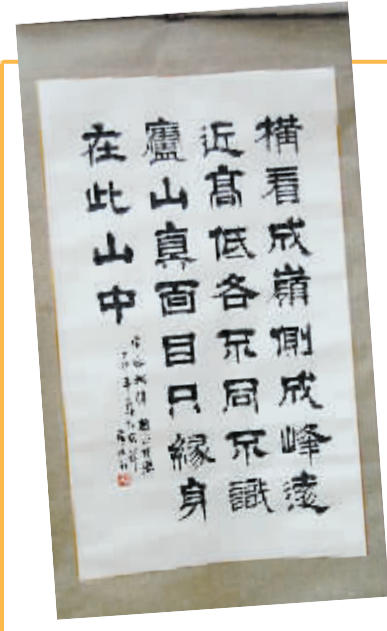 橫看成嶺側成峰遠
近高低各不同不識
廬山真面目只緣身
在此山中